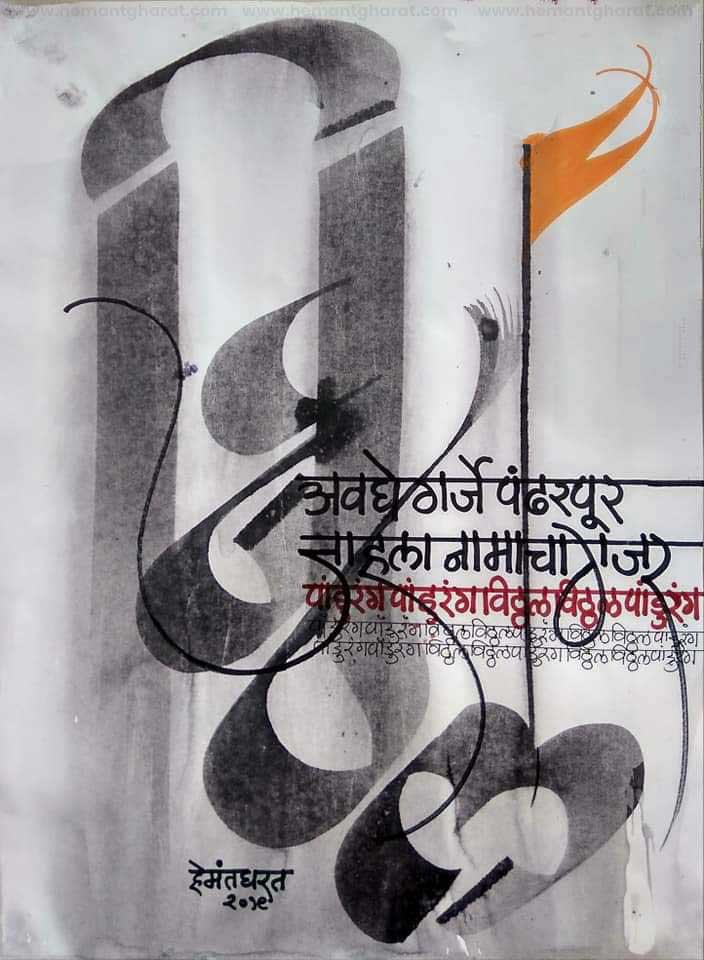 www.hemantgharat.com www.hemantgharat.com www.hemantgharat.com
अवघे गर्जे पंढरपूर
चालला नामाचा गजर
पांडुरंगपांडुरंगविठ्ठलविठ्ठलपांडुरंग
पांडुरंगपांडुरंगविठ्ठलविठ्ठलपांडुरंगविठ्ठलविठ्ठलपांडुरंग
पांडुरंगपांडुरंगविठ्ठलविठ्ठलपांडुरंगविठ्ठलविठ्ठलपांडुरंग
हेमंतघरत
२०१९